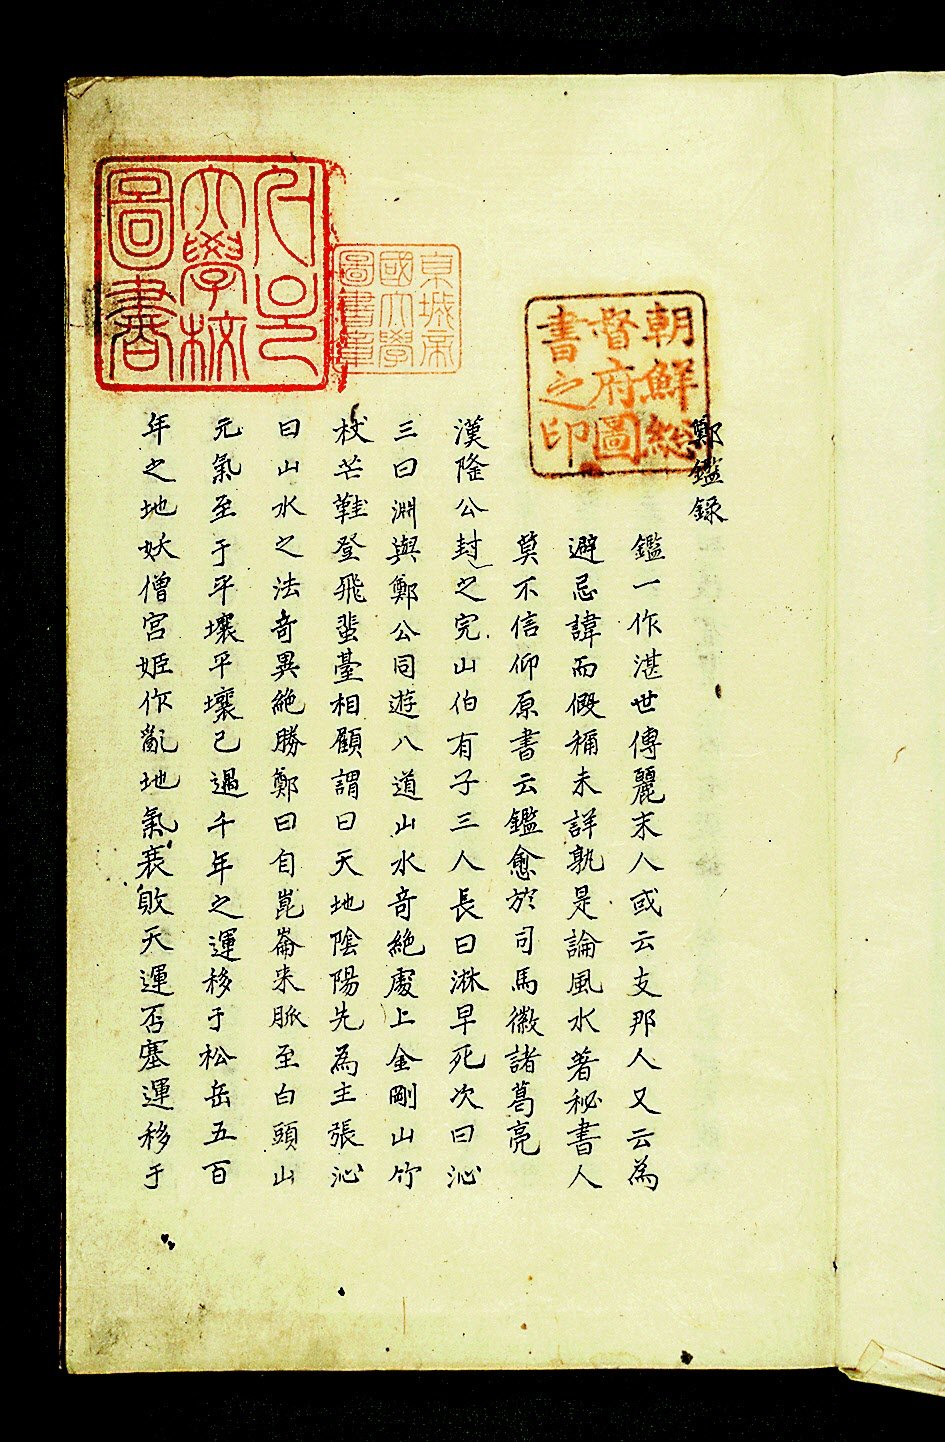 鄭鑑錄
鑑一作湛世傳麗末人或云支那人又云為
避忌諱而假稱未詳孰是論風水著秘書人
莫不信仰原書云鑑愈於司馬徽諸葛亮
漢隆公封之完山伯有子三人長曰淋早死次曰沁
三曰淵與鄭公同遊八道山水奇絕處上金剛山竹
杖芒鞋登飛蜚臺相顧謂曰天地陰陽先為主張沁
曰山水之法奇異絕勝鄭曰自崑崙来脈至白頭山
元氣至于平壤平壤已過千年之運移于松岳五百
年之地妖僧宮姬作亂地氣衰敗天運否塞運移于
朝鮮總督府圖書之印
京城帝國大學圖書章
서울大學校圖書